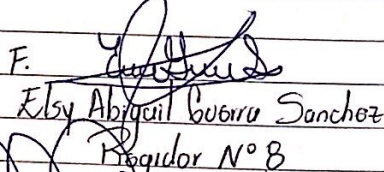 F.
Elsy Abigail Guerra Sanchez
Regidor N° 8